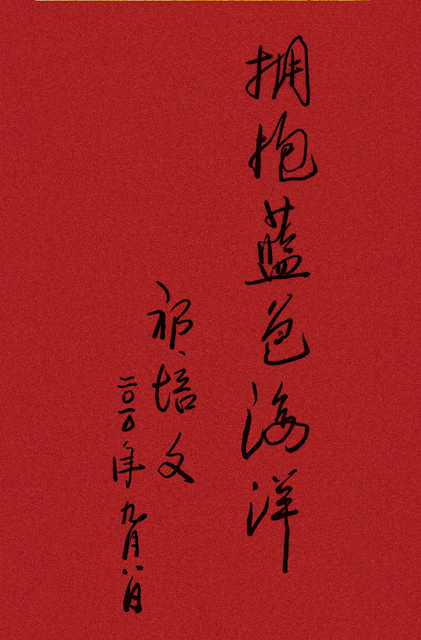 拥抱蓝色海洋
祁培文
二〇一〇年九月八日